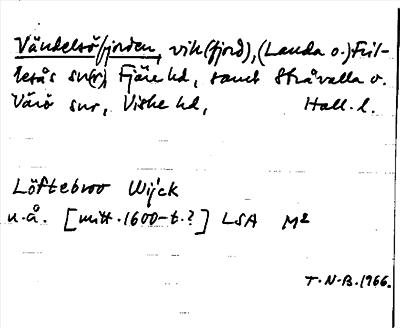 Vändelsöfjorden, vik (fjord), (Landa o.) Fril-
lesås sn(r), Fjäre hd, samt Stråvalla o.
Värö snr, Viske hd, Hall. l.
Löftebroo Wijck
u.å. [mitt. 1600-t.?] LSA M2
T.N-B. 1966.